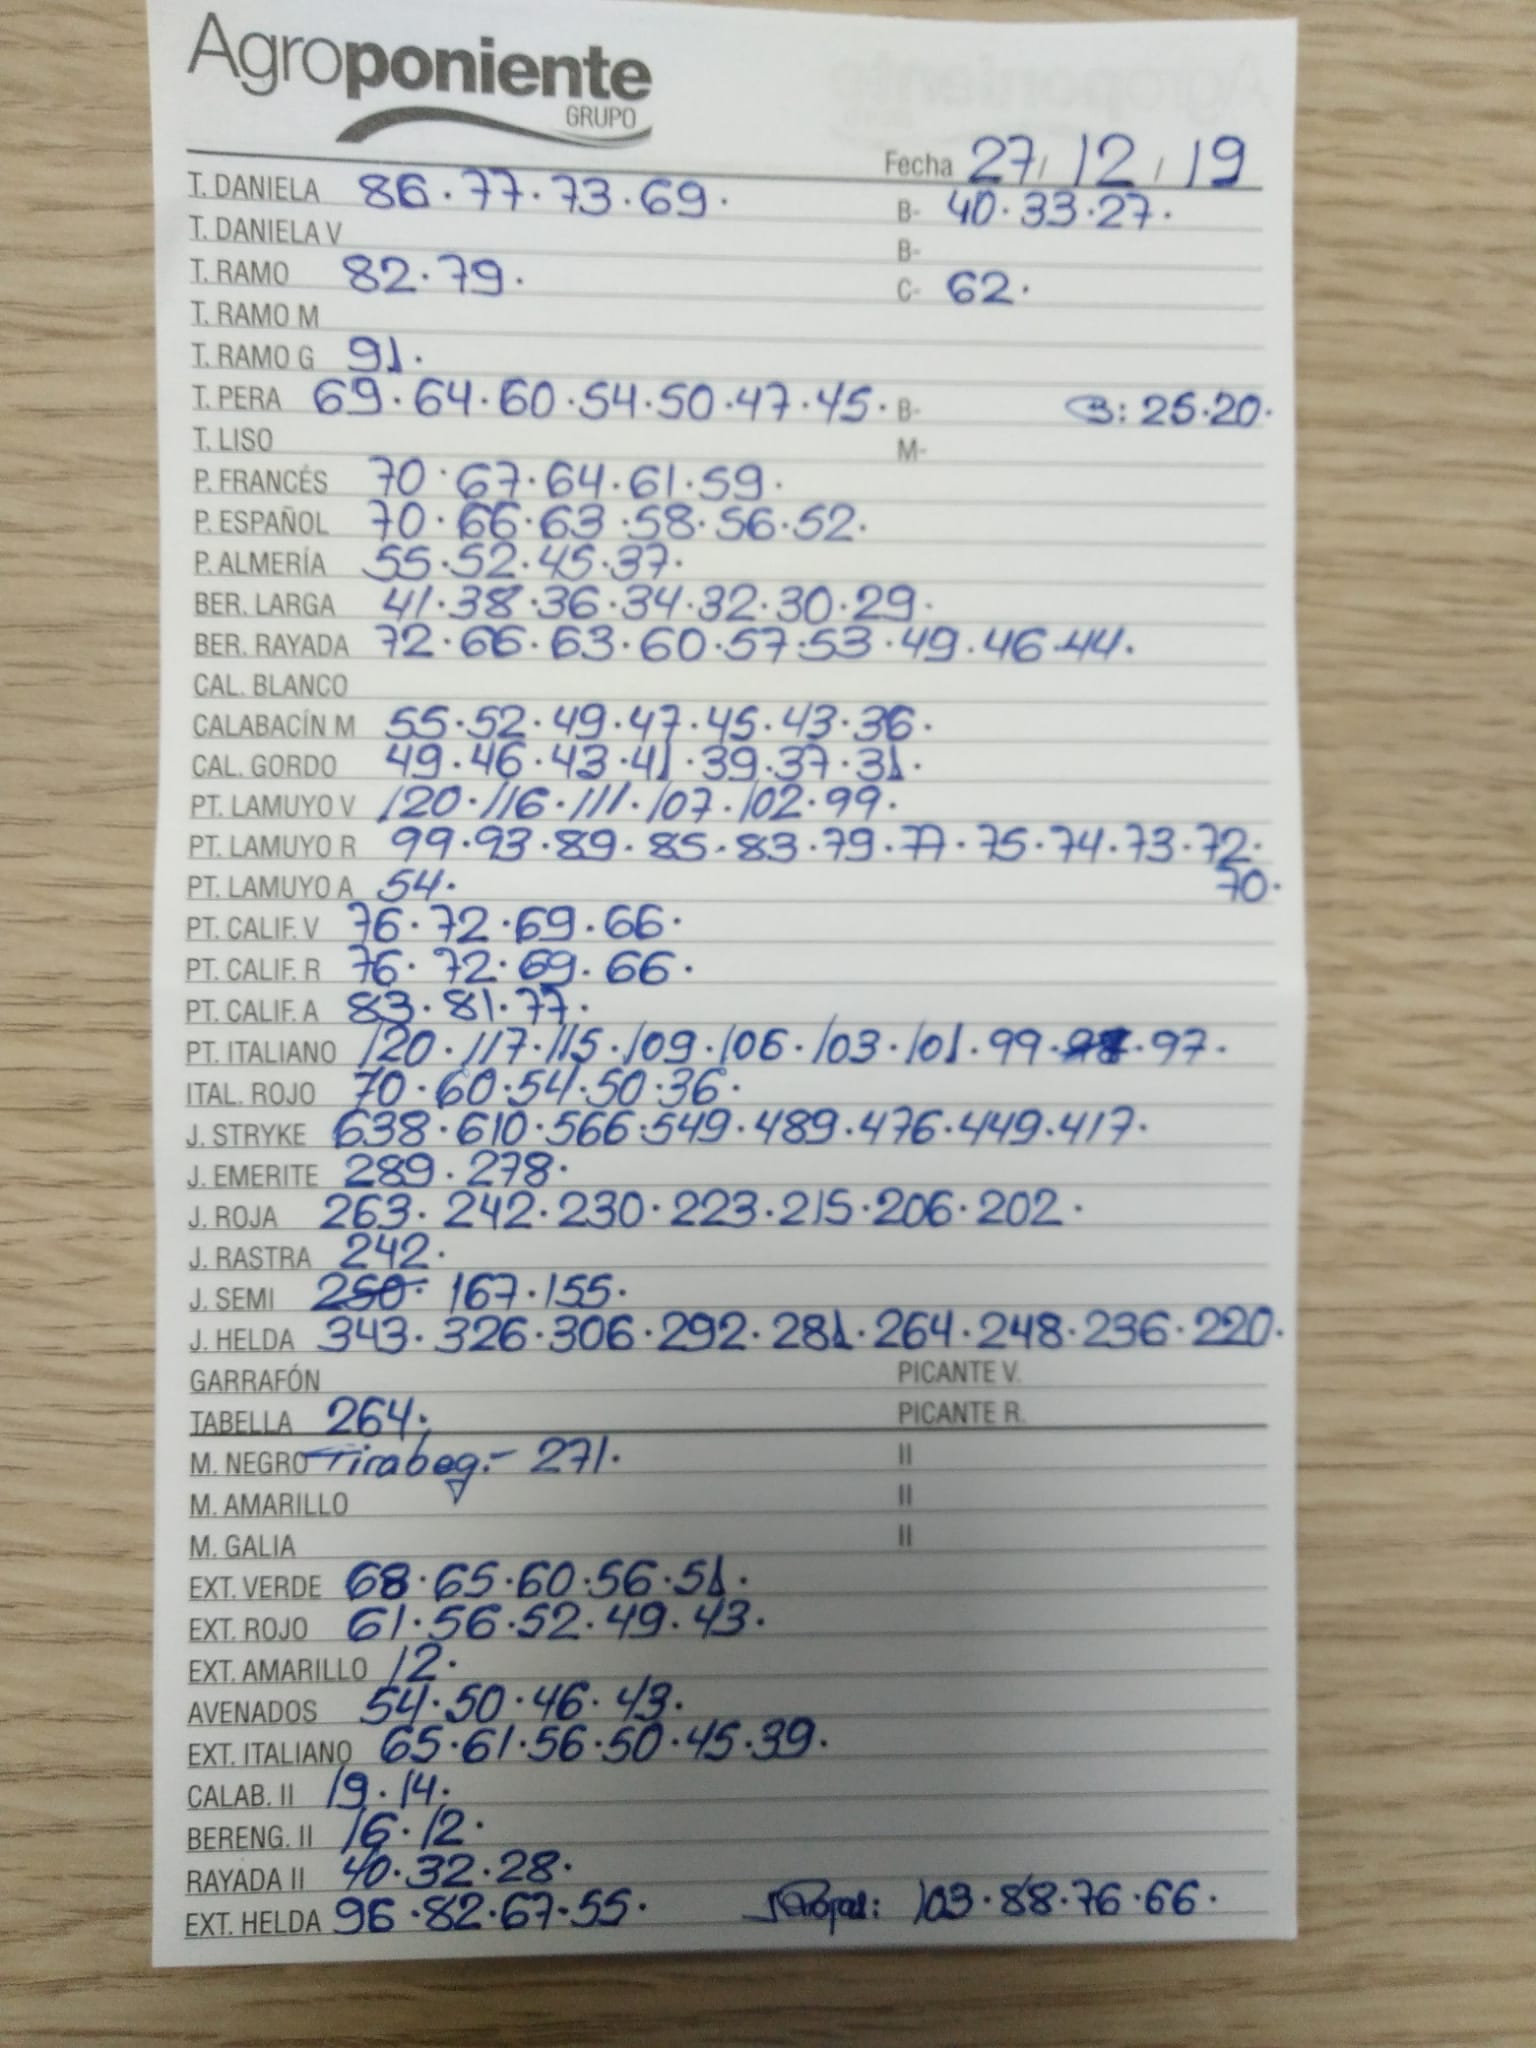 Agroponiente
GRUPO
Fecha 27/12/19
T. DANIELA 86·77·73·69· B- 40·33·27·
T. DANIELA V B-
T. RAMO 82·79· C- 62·
T. RAMO M
T. RAMO G 91·
T. PERA 69·64·60·54·50·47·45· B- B: 25·20·
T. LISO M-
P. FRANCÉS 70·67·64·61·59·
P. ESPAÑOL 70·66·63·58·56·52·
P. ALMERÍA 55·52·45·37·
BER. LARGA 41·38·36·34·32·30·29·
BER. RAYADA 72·66·63·60·57·53·49·46·44·
CAL. BLANCO
CALABACÍN M 55·52·49·47·45·43·36·
CAL. GORDO 49·46·43·41·39·37·31·
PT. LAMUYO V 120·116·111·107·102·99·
PT. LAMUYO R 99·93·89·85·83·79·77·75·74·73·72·
PT. LAMUYO A 54· 70·
PT. CALIF. V 76·72·69·66·
PT. CALIF. R 76·72·69·66·
PT. CALIF. A 83·81·77·
PT. ITALIANO 120·117·115·109·106·103·101·99·97·
ITAL. ROJO 70·60·54·50·36·
J. STRYKE 638·610·566·549·489·476·449·417·
J. EMERITE 289·278·
J. ROJA 263·242·230·223·215·206·202·
J. RASTRA 242·
J. SEMI 250· 167·155·
J. HELDA 343·326·306·292·281·264·248·236·220·
GARRAFÓN PICANTE V.
TABELLA 264· PICANTE R.
M. NEGRO Tirabeg.- 271· II
M. AMARILLO II
M. GALIA II
EXT. VERDE 68·65·60·56·51·
EXT. ROJO 61·56·52·49·43·
EXT. AMARILLO 12·
AVENADOS 54·50·46·43·
EXT. ITALIANO 65·61·56·50·45·39·
CALAB. II 19·14·
BERENG. II 16·12·
RAYADA II 40·32·28·
EXT. HELDA 96·82·67·55· 103·88·76·66·